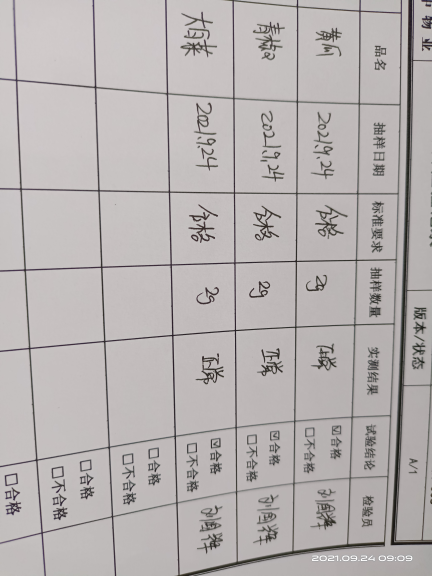 物业
版本/状态
A/1
品名 抽样日期 标准要求 抽样数量 实测结果 试验结论 检验员
黄瓜 2021.9.24 合格 2g 正常 ☑合格 □不合格 刘国祥
青椒 2021.9.24 合格 2g 正常 ☑合格 □不合格 刘国祥
大白菜 2021.9.24 合格 2g 正常 ☑合格 □不合格 刘国祥
□合格 □不合格
□合格 □不合格
□合格
2021.09.24 09:09